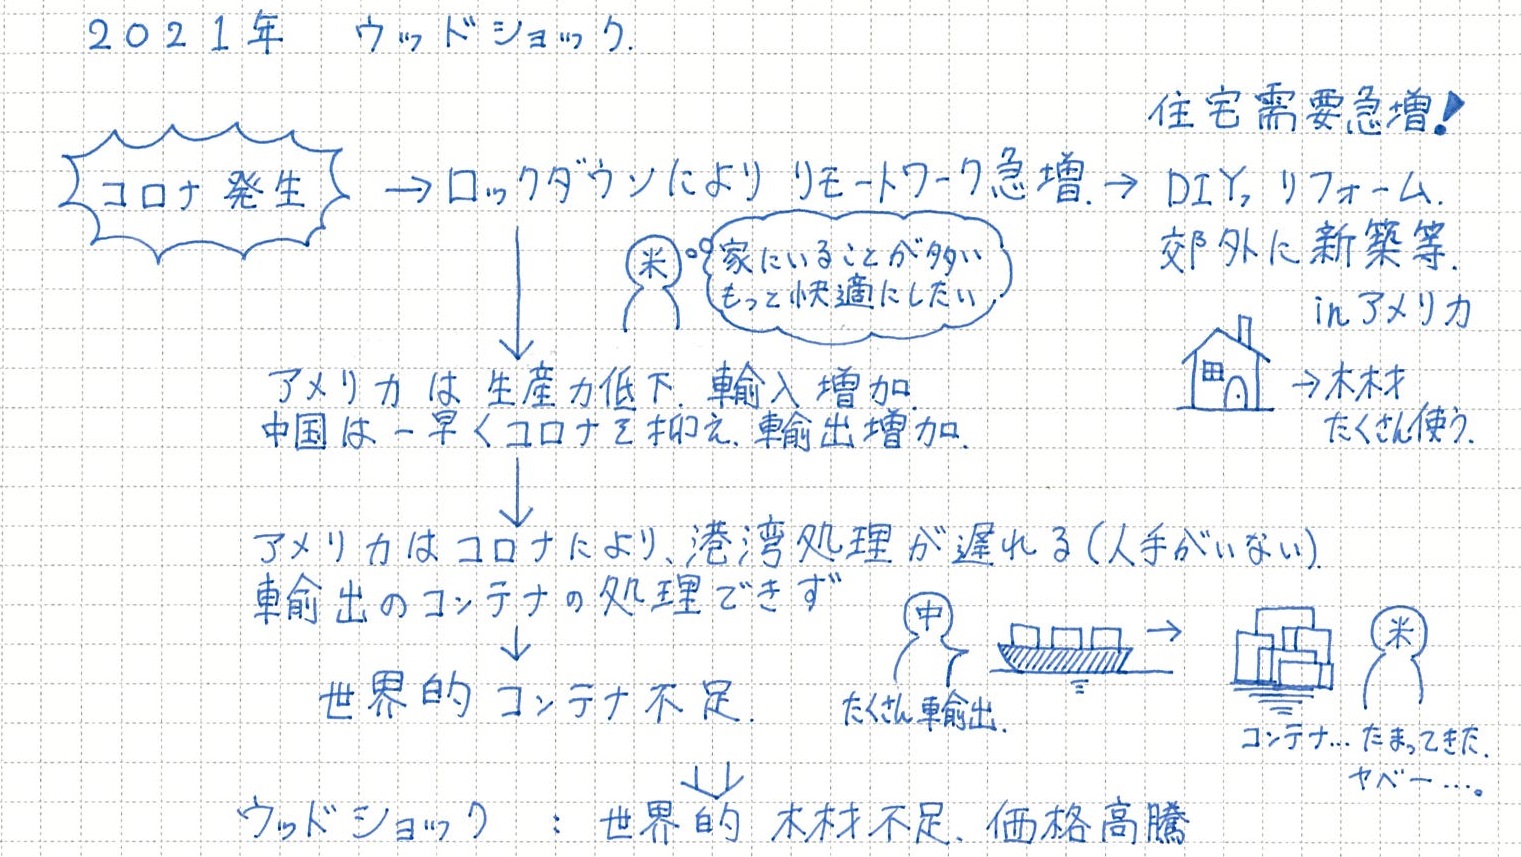 2021年 ウッドショック.
住宅需要急増!
コロナ発生 → ロックダウンにより リモートワーク急増. → DIY, リフォーム.
郊外に新築等.
in アメリカ
米
家にいることが多い
もっと快適にしたい
→木材
たくさん使う.
アメリカは生産力低下. 輸入増加.
中国は一早くコロナを抑え、輸出増加.
アメリカはコロナにより、港湾処理が遅れる(人手がいない).
輸出のコンテナの処理できず
世界的コンテナ不足.
中
たくさん輸出.
米
コンテナ…たまってきた.
ヤベー…。
ウッドショック : 世界的木材不足、価格高騰